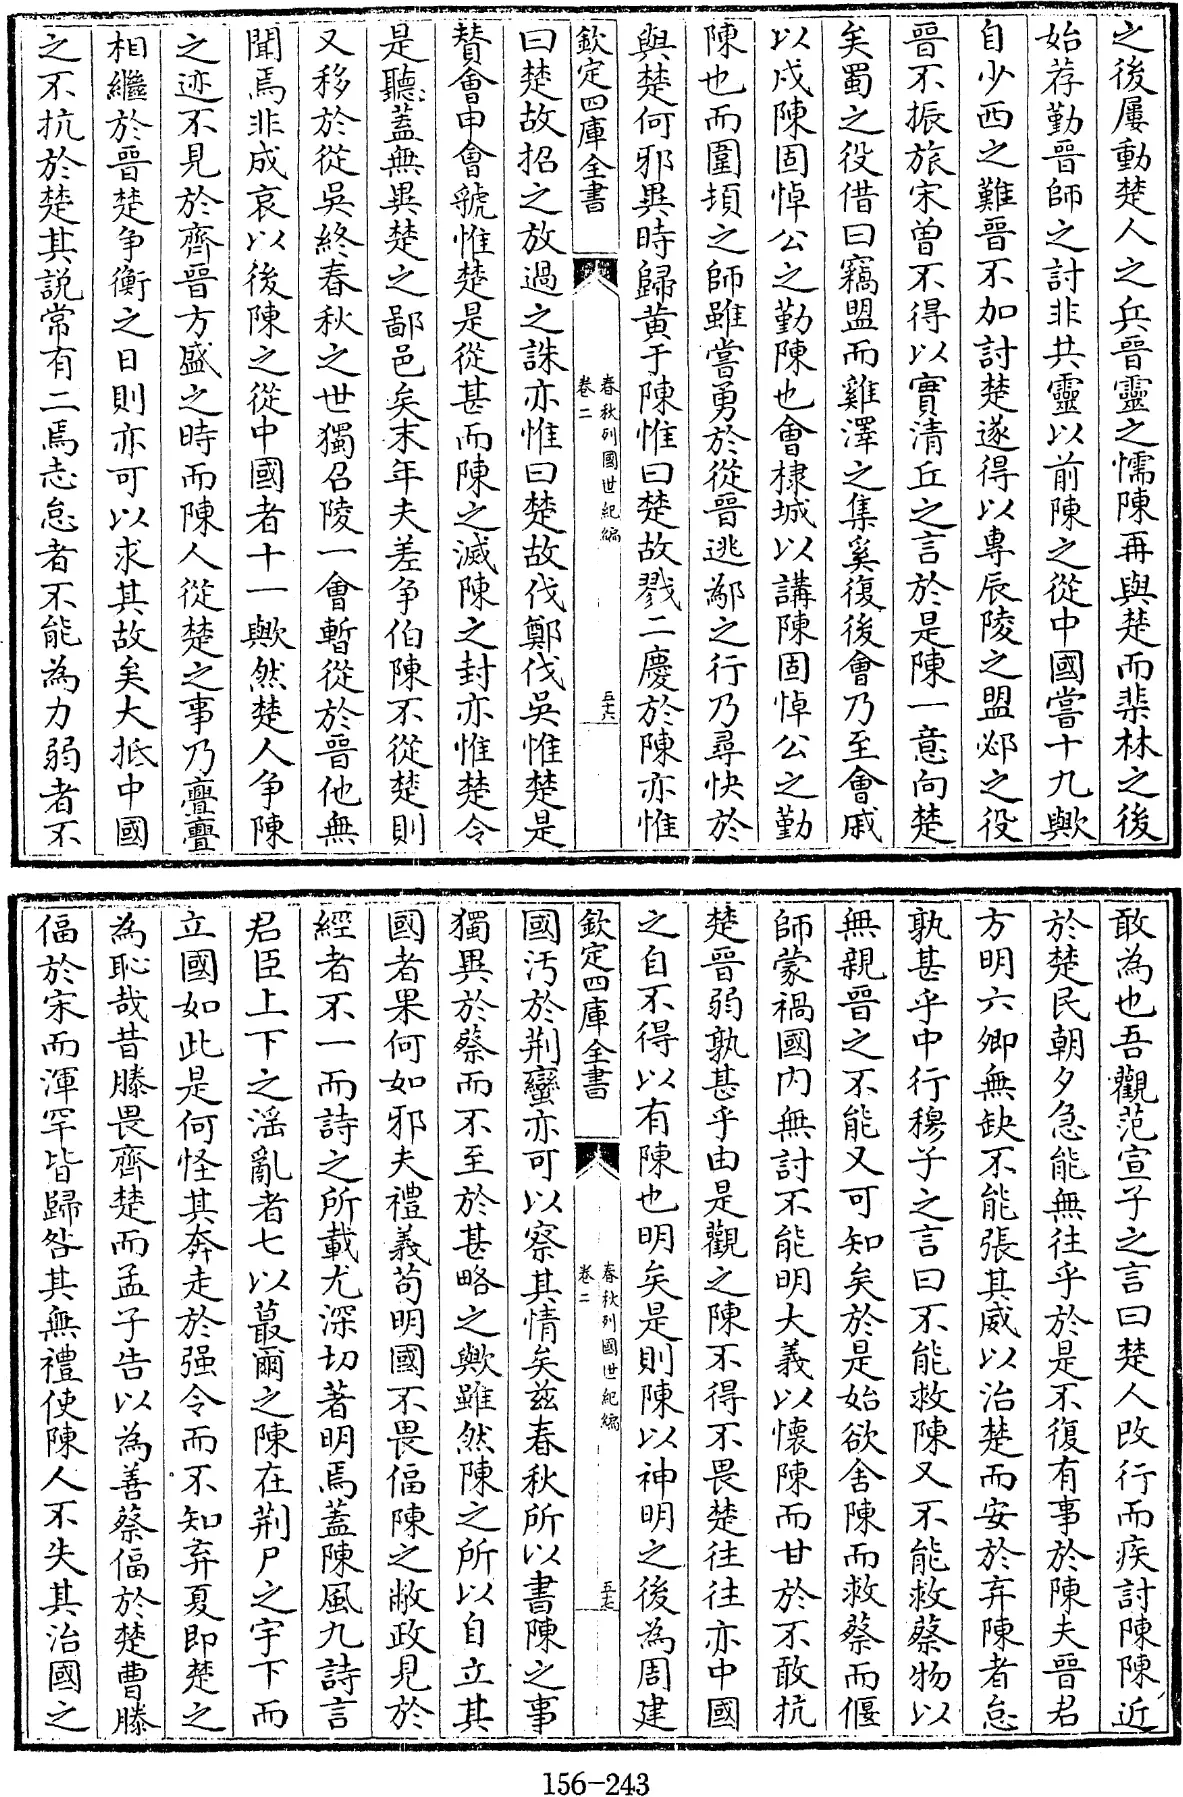 之後屢動楚人之兵晉靈之懦陳再與楚而棐林之後
始荐勤晉師之討非共靈以前陳之從中國嘗十九歟
自少西之難晉不加討楚遂得以專辰陵之盟邲之役
晉不振旅宋曾不得以實清丘之言於是陳一意向楚
矣蜀之役借曰竊盟而雞澤之集奚復後會乃至會戚
以戍陳固悼公之勤陳也會棣城以講陳固悼公之勤
陳也而圍頓之師雖嘗勇於從晉逃鄬之行乃尋快於
與楚何邪異時歸黄于陳惟曰楚故戮二慶於陳亦惟
欽定四庫全書
春秋列國世紀編
卷二
五十六
曰楚故招之放過之誅亦惟曰楚故伐鄭伐吳惟楚是
賛會申會虢惟楚是從甚而陳之滅陳之封亦惟楚令
是聽蓋無異楚之鄙邑矣末年夫差争伯陳不從楚則
又移於從吳終春秋之世獨召陵一會暫從於晉他無
聞焉非成哀以後陳之從中國者十一歟然楚人争陳
之迹不見於齊晉方盛之時而陳人從楚之事乃亹亹
相繼於晉楚争衡之日則亦可以求其故矣大抵中國
之不抗於楚其說常有二焉志怠者不能為力弱者不
敢為也吾觀范宣子之言曰楚人改行而疾討陳陳近
於楚民朝夕急能無往乎於是不復有事於陳夫晉君
方明六卿無缺不能張其威以治楚而安於弃陳者怠
孰甚乎中行穆子之言曰不能救陳又不能救蔡物以
無親晉之不能又可知矣於是始欲舍陳而救蔡而偃
師蒙禍國内無討不能明大義以懷陳而甘於不敢抗
楚晉弱孰甚乎由是觀之陳不得不畏楚往往亦中國
之自不得以有陳也明矣是則陳以神明之後為周建
欽定四庫全書
春秋列國世紀編
卷二
五十七
國汚於荆蠻亦可以察其情矣兹春秋所以書陳之事
獨異於蔡而不至於甚略之歟雖然陳之所以自立其
國者果何如邪夫禮義苟明國不畏偪陳之敝政見於
經者不一而詩之所載尤深切著明焉蓋陳風九詩言
君臣上下之淫亂者七以蕞爾之陳在荆尸之宇下而
立國如此是何怪其奔走於强令而不知弃夏即楚之
為恥哉昔滕畏齊楚而孟子告以為善蔡偪於楚曹滕
偪於宋而渾罕皆歸咎其無禮使陳人不失其治國之
156-243